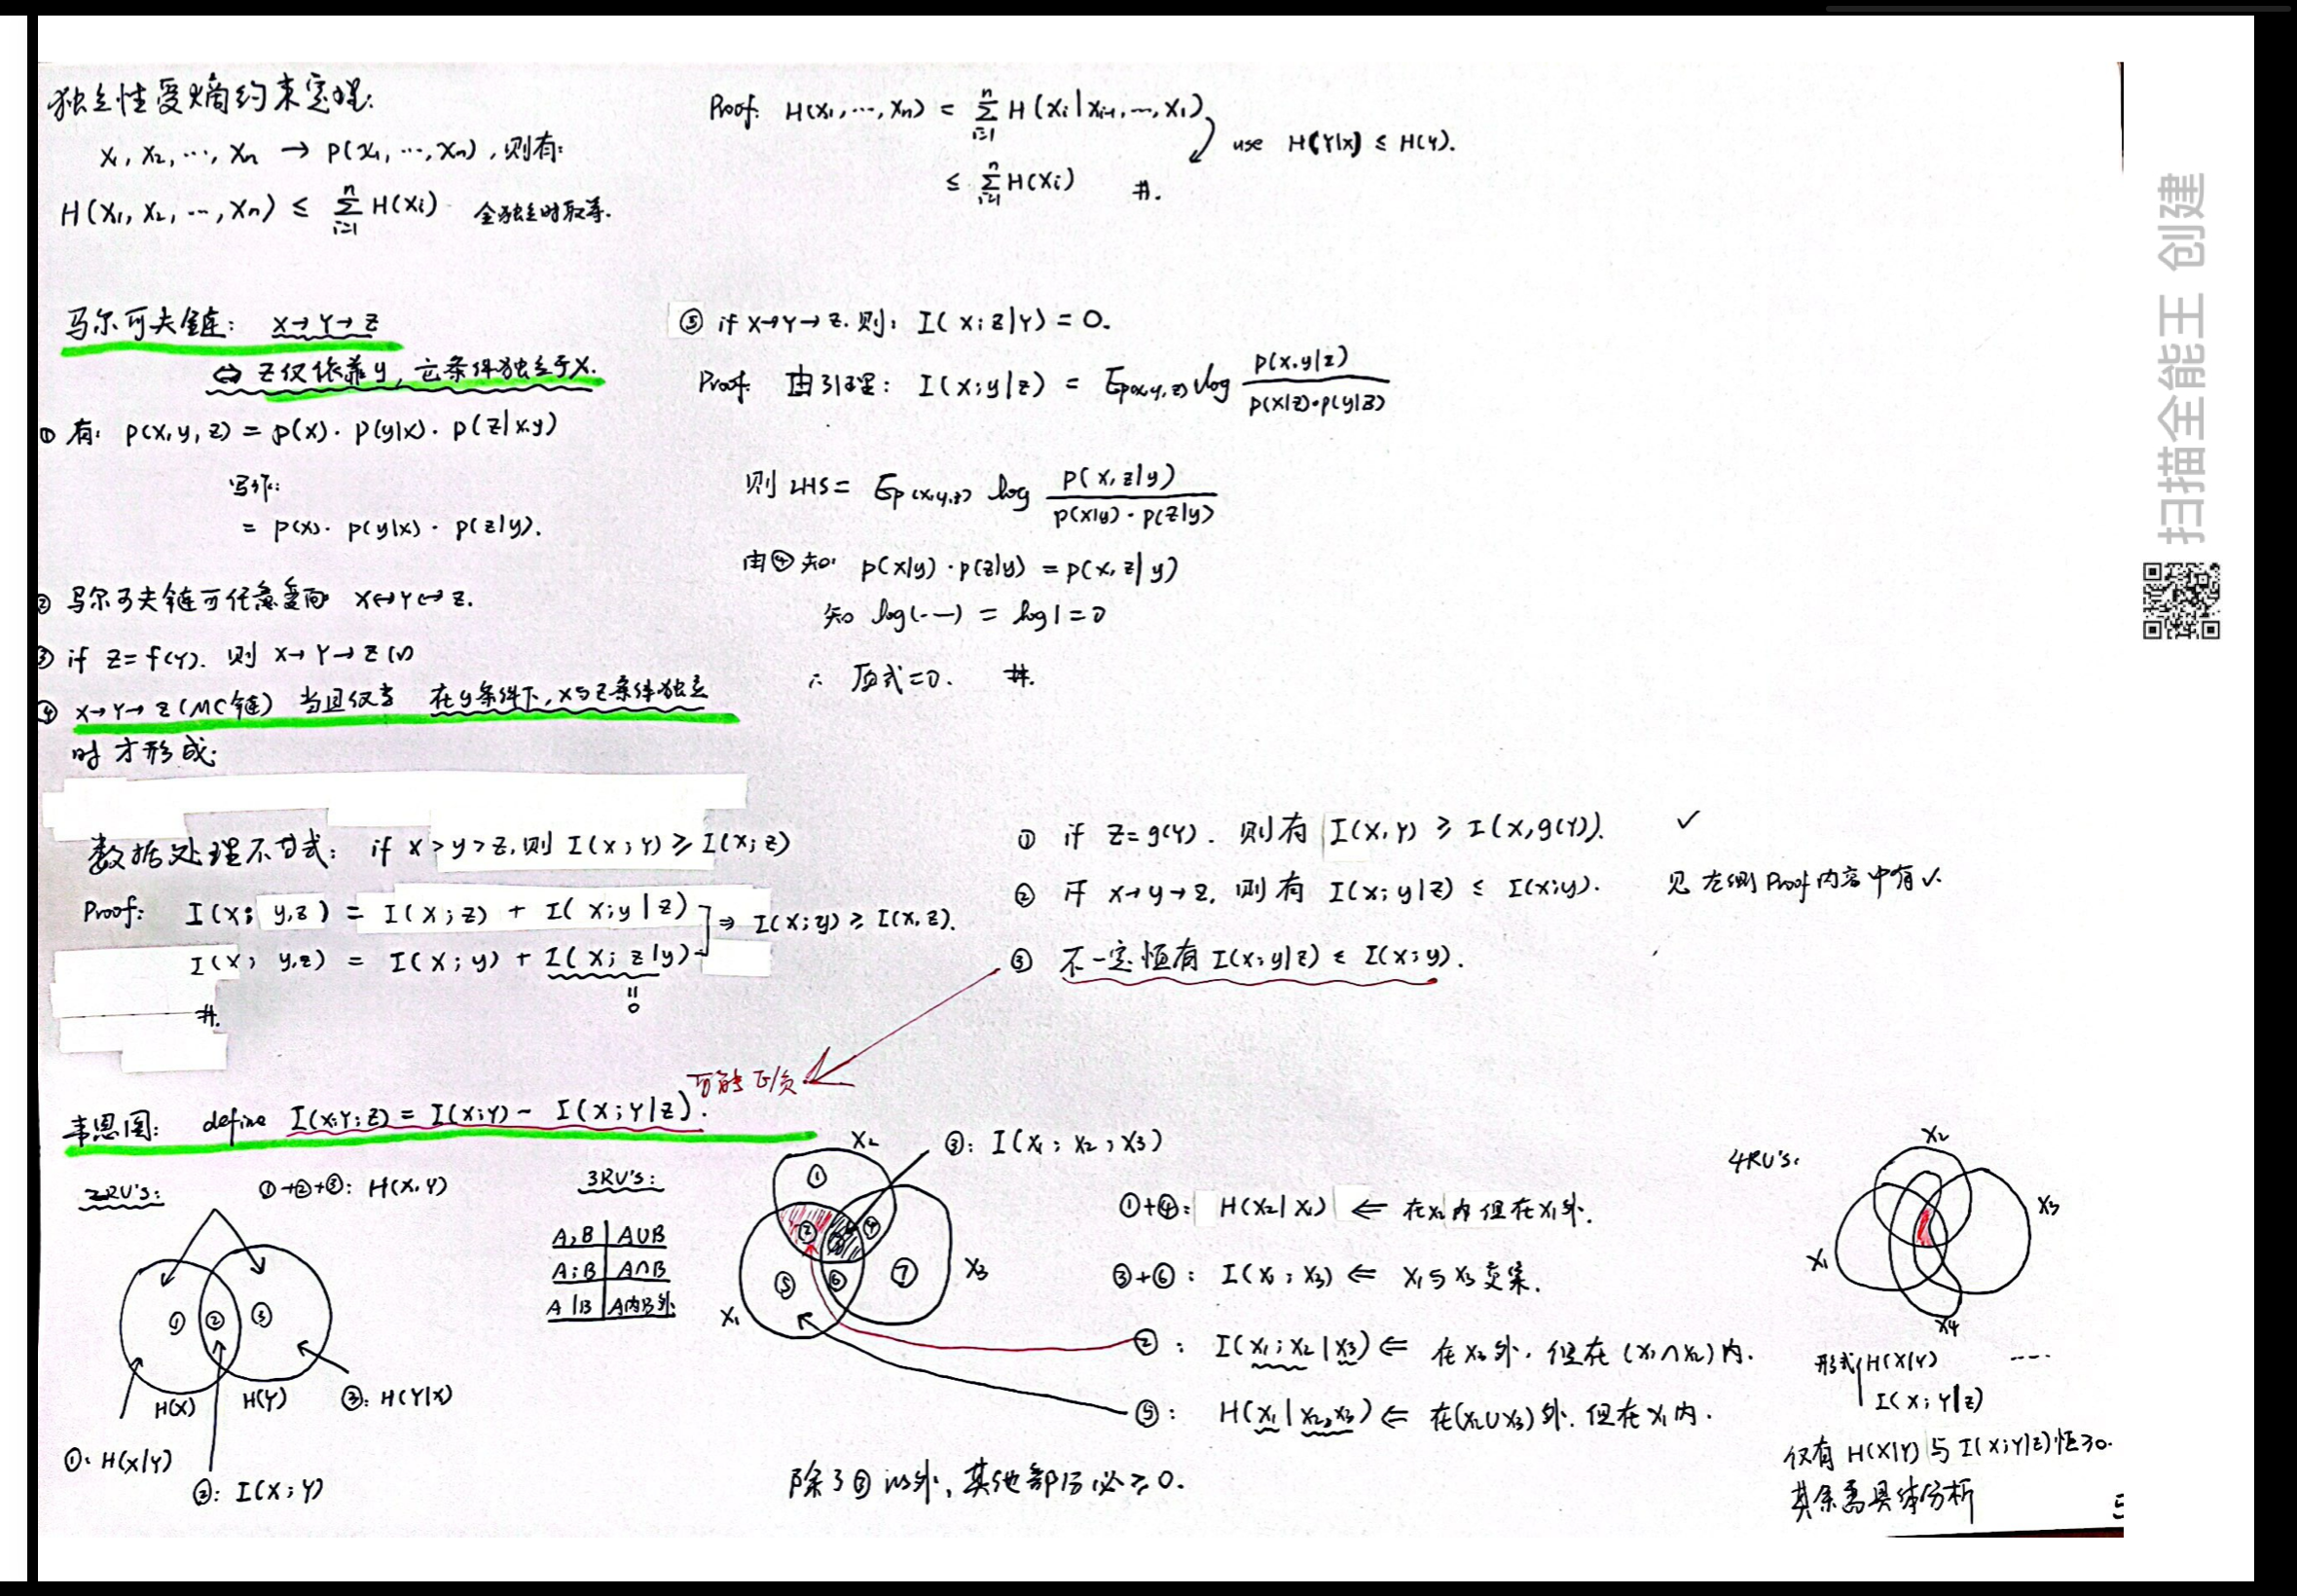 独立性受熵约束定理:
X₁, X₂, ⋯, Xn → P(x₁, ⋯, xn), 则有:
H(X₁, X₂, ⋯, Xn) ≤ Σⁿᵢ₌₁ H(Xi) 全独立时取等.
Proof: H(X₁, ⋯, Xn) = Σⁿᵢ₌₁ H(Xi|Xi-1, ⋯, X₁)
use H(Y|X) ≤ H(Y).
≤ Σⁿᵢ₌₁ H(Xi) #.
马尔可夫链: X→Y→Z
⇔ Z仅依靠y, 它条件独立于X.
① 有: P(x,y,z) = p(x)·P(y|x)·P(z|x.y)
写作:
= p(x)·p(y|x)·p(z|y).
② 马尔可夫链可任意变向 X↔Y↔Z.
③ if Z=f(Y). 则 X→Y→Z
④ X→Y→Z (MC链) 当且仅当 在y条件下, X与Z条件独立
时才形成:
⑤ if X→Y→Z. 则: I(X;Z|Y) = 0.
Proof. 由引理: I(X;y|z) = Ep(x,y,z) log P(x.y|z) / p(x|z)·p(y|z)
则 LHS = Ep(x,y,z) log P(x,z|y) / p(x|y)·p(z|y)
由④知: p(x|y)·p(z|y) = p(x,z|y)
知 log(⋯) = log1 = 0
∴ 原式=0. #.
数据处理不等式: if x>y>z, 则 I(X;Y) ≥ I(X;Z)
Proof: I(X; y,z) = I(X;z) + I(X;y|z)
⇒ I(X;y) ≥ I(X,z).
I(X; y,z) = I(X;y) + I(X;z|y)
=
0
#.
① if Z=g(Y). 则有 I(X,Y) ≥ I(X,g(Y)). ✓
② if X→y→z, 则有 I(X;y|z) ≤ I(X;y). 见左侧Proof内容中有✓.
③ 不一定恒有 I(X;y|z) ≤ I(X;y).
可能正/负
韦恩图: define I(X;Y;Z) = I(X;Y) - I(X;Y|Z).
2RV's: ①+②+③: H(X,Y)
① ② ③
H(X) H(Y) ③: H(Y|X)
①: H(X|Y)
②: I(X;Y)
3RV's:
A,B | A∪B
A;B | A∩B
A|B | A内B外
X₂ ③: I(X₁; X₂; X₃)
① ② ③ ④ ⑤ ⑥ ⑦
X₁ X₃
①+④: H(X₂|X₁) ⇐ 在X₂内但在X₁外.
③+⑥: I(X₁;X₃) ⇐ X₁与X₃交集.
②: I(X₁;X₂|X₃) ⇐ 在X₃外, 但在(X₁∩X₂)内.
⑤: H(X₁|X₂,X₃) ⇐ 在(X₂∪X₃)外. 但在X₁内.
除了③以外, 其他部分必≥0.
4RV's.
X₂
X₃
X₁
X4
形式 H(X|Y) ⋯
I(X;Y|Z)
仅有 H(X|Y) 与 I(X;Y|Z)恒≥0.
其余需具体分析
5
扫描全能王 创建